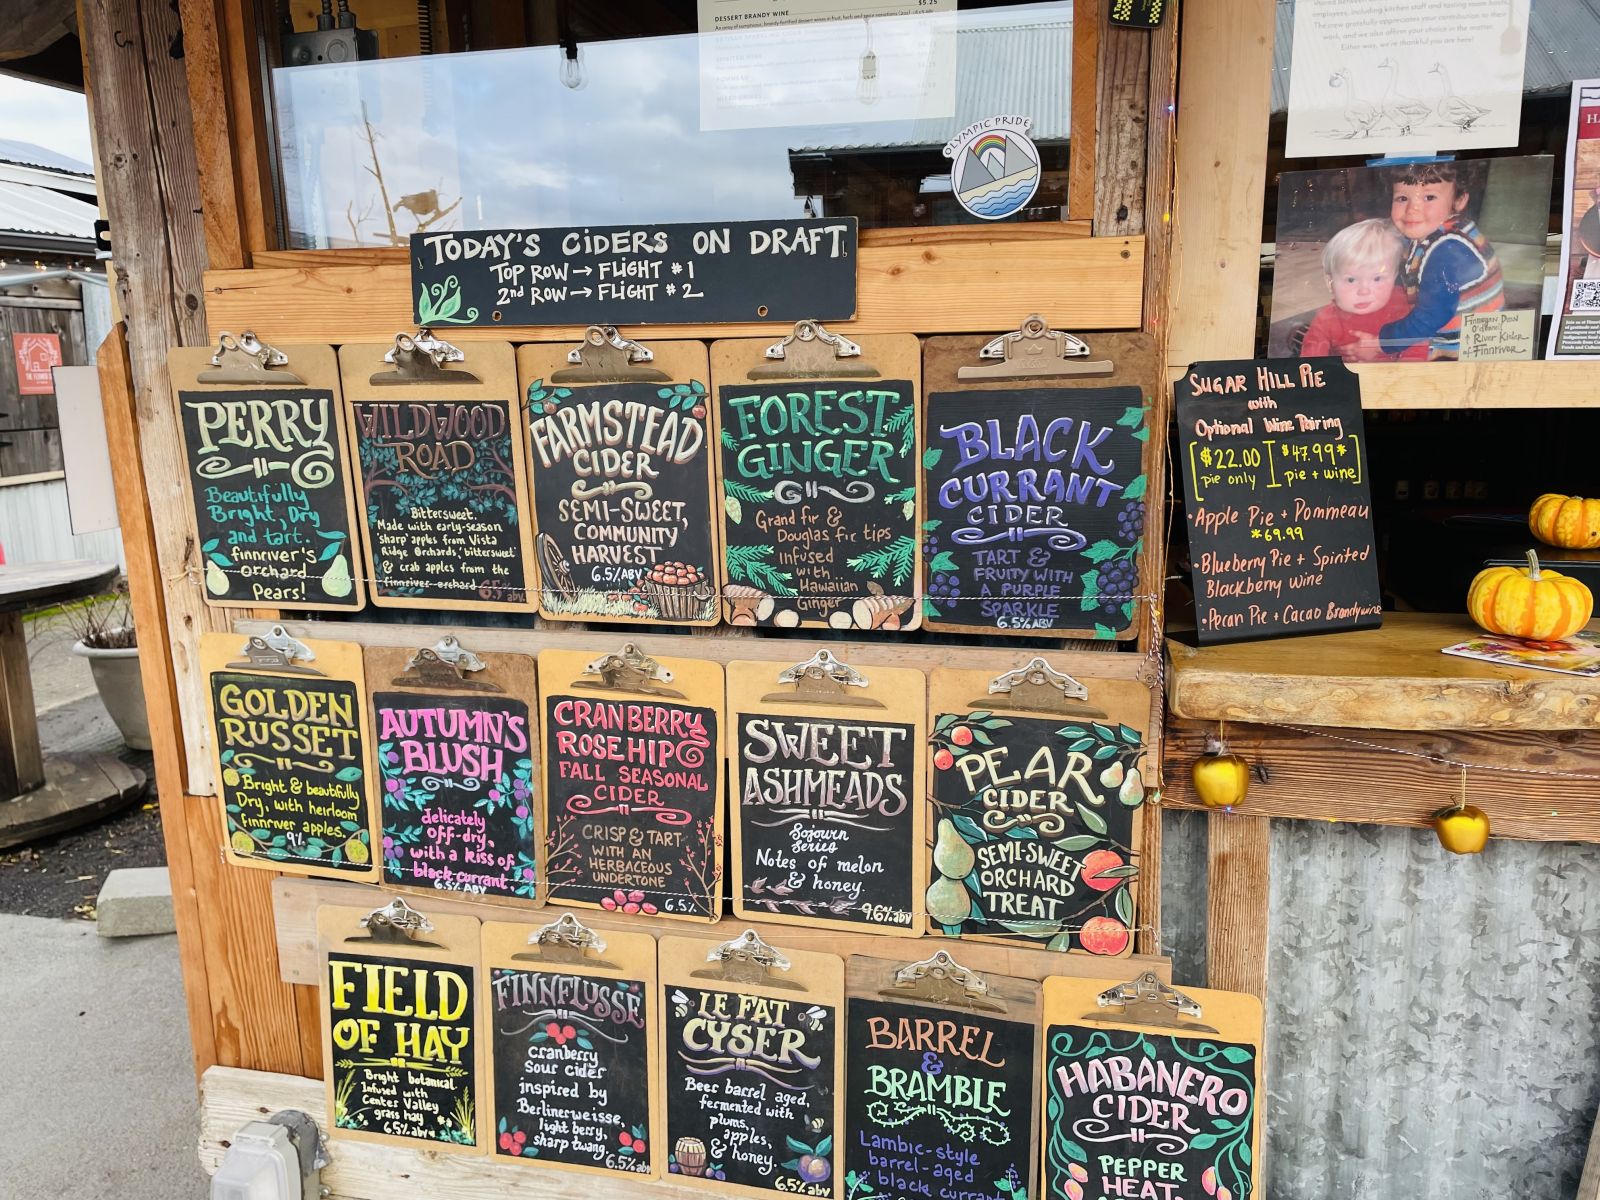 $5.25
DESSERT BRANDY WINE
OLYMPIC PRIDE
employees, including kitchen staff and tasting room hosts.
The crew gratefully appreciates your contributions to their
work, and we also affirm your choice in the matter.
Either way, we're thankful you are here!
TODAY'S CIDERS ON DRAFT
TOP ROW → FLIGHT #1
2nd ROW → FLIGHT #2
PERRY
Beautifully
Bright, Dry
and tart.
finnriver's
orchard
Pears!
WILDWOOD
ROAD
Bittersweet.
Made with early-season
sharp apples from Vista
Ridge Orchards, 'bittersweet'
& crab apples from the
finnriver orchard 6.5% abv
FARMSTEAD
CIDER
SEMI-SWEET,
COMMUNITY
HARVEST
6.5% ABV
FOREST
GINGER
Grand fir &
Douglas fir tips
Infused
with
Hawaiian
Ginger
BLACK
CURRANT
CIDER
TART &
FRUITY WITH
A PURPLE
SPARKLE
6.5% ABV
Finnegan Dean
O'donnell
& River Kisler
of Finnriver
SUGAR HILL PIE
with
Optional Wine Pairing
$22.00
pie only
$47.99*
pie + wine
•Apple Pie + Pommeau
*69.99
•Blueberry Pie + Spirited
Blackberry wine
•Pecan Pie + Cacao Brandywine
GOLDEN
RUSSET
Bright & beautifully
Dry, with heirloom
finnriver apples.
9%
AUTUMN'S
BLUSH
delicately
off-dry,
with a kiss of
black currant.
6.5% ABV
CRANBERRY
ROSEHIP
FALL SEASONAL
CIDER
CRISP & TART
WITH AN
HERBACEOUS
UNDERTONE
6.5%
SWEET
ASHMEADS
Sojourn
Series
Notes of melon
& honey.
9.6% abv
PEAR
CIDER
SEMI-SWEET
ORCHARD
TREAT
FIELD
OF HAY
Bright botanical
Infused with
Center Valley
grass hay
6.5% abv
FINNFLUSSE
Cranberry
sour cider
inspired by
Berlinerweisse,
light berry,
sharp twang
6.5% abv
LE FAT
CYSER
Beer barrel aged,
fermented with
plums,
apples,
& honey.
6.5% abv
BARREL
&
BRAMBLE
Lambic-style
barrel-aged
black currant
HABANERO
CIDER
PEPPER
HEAT